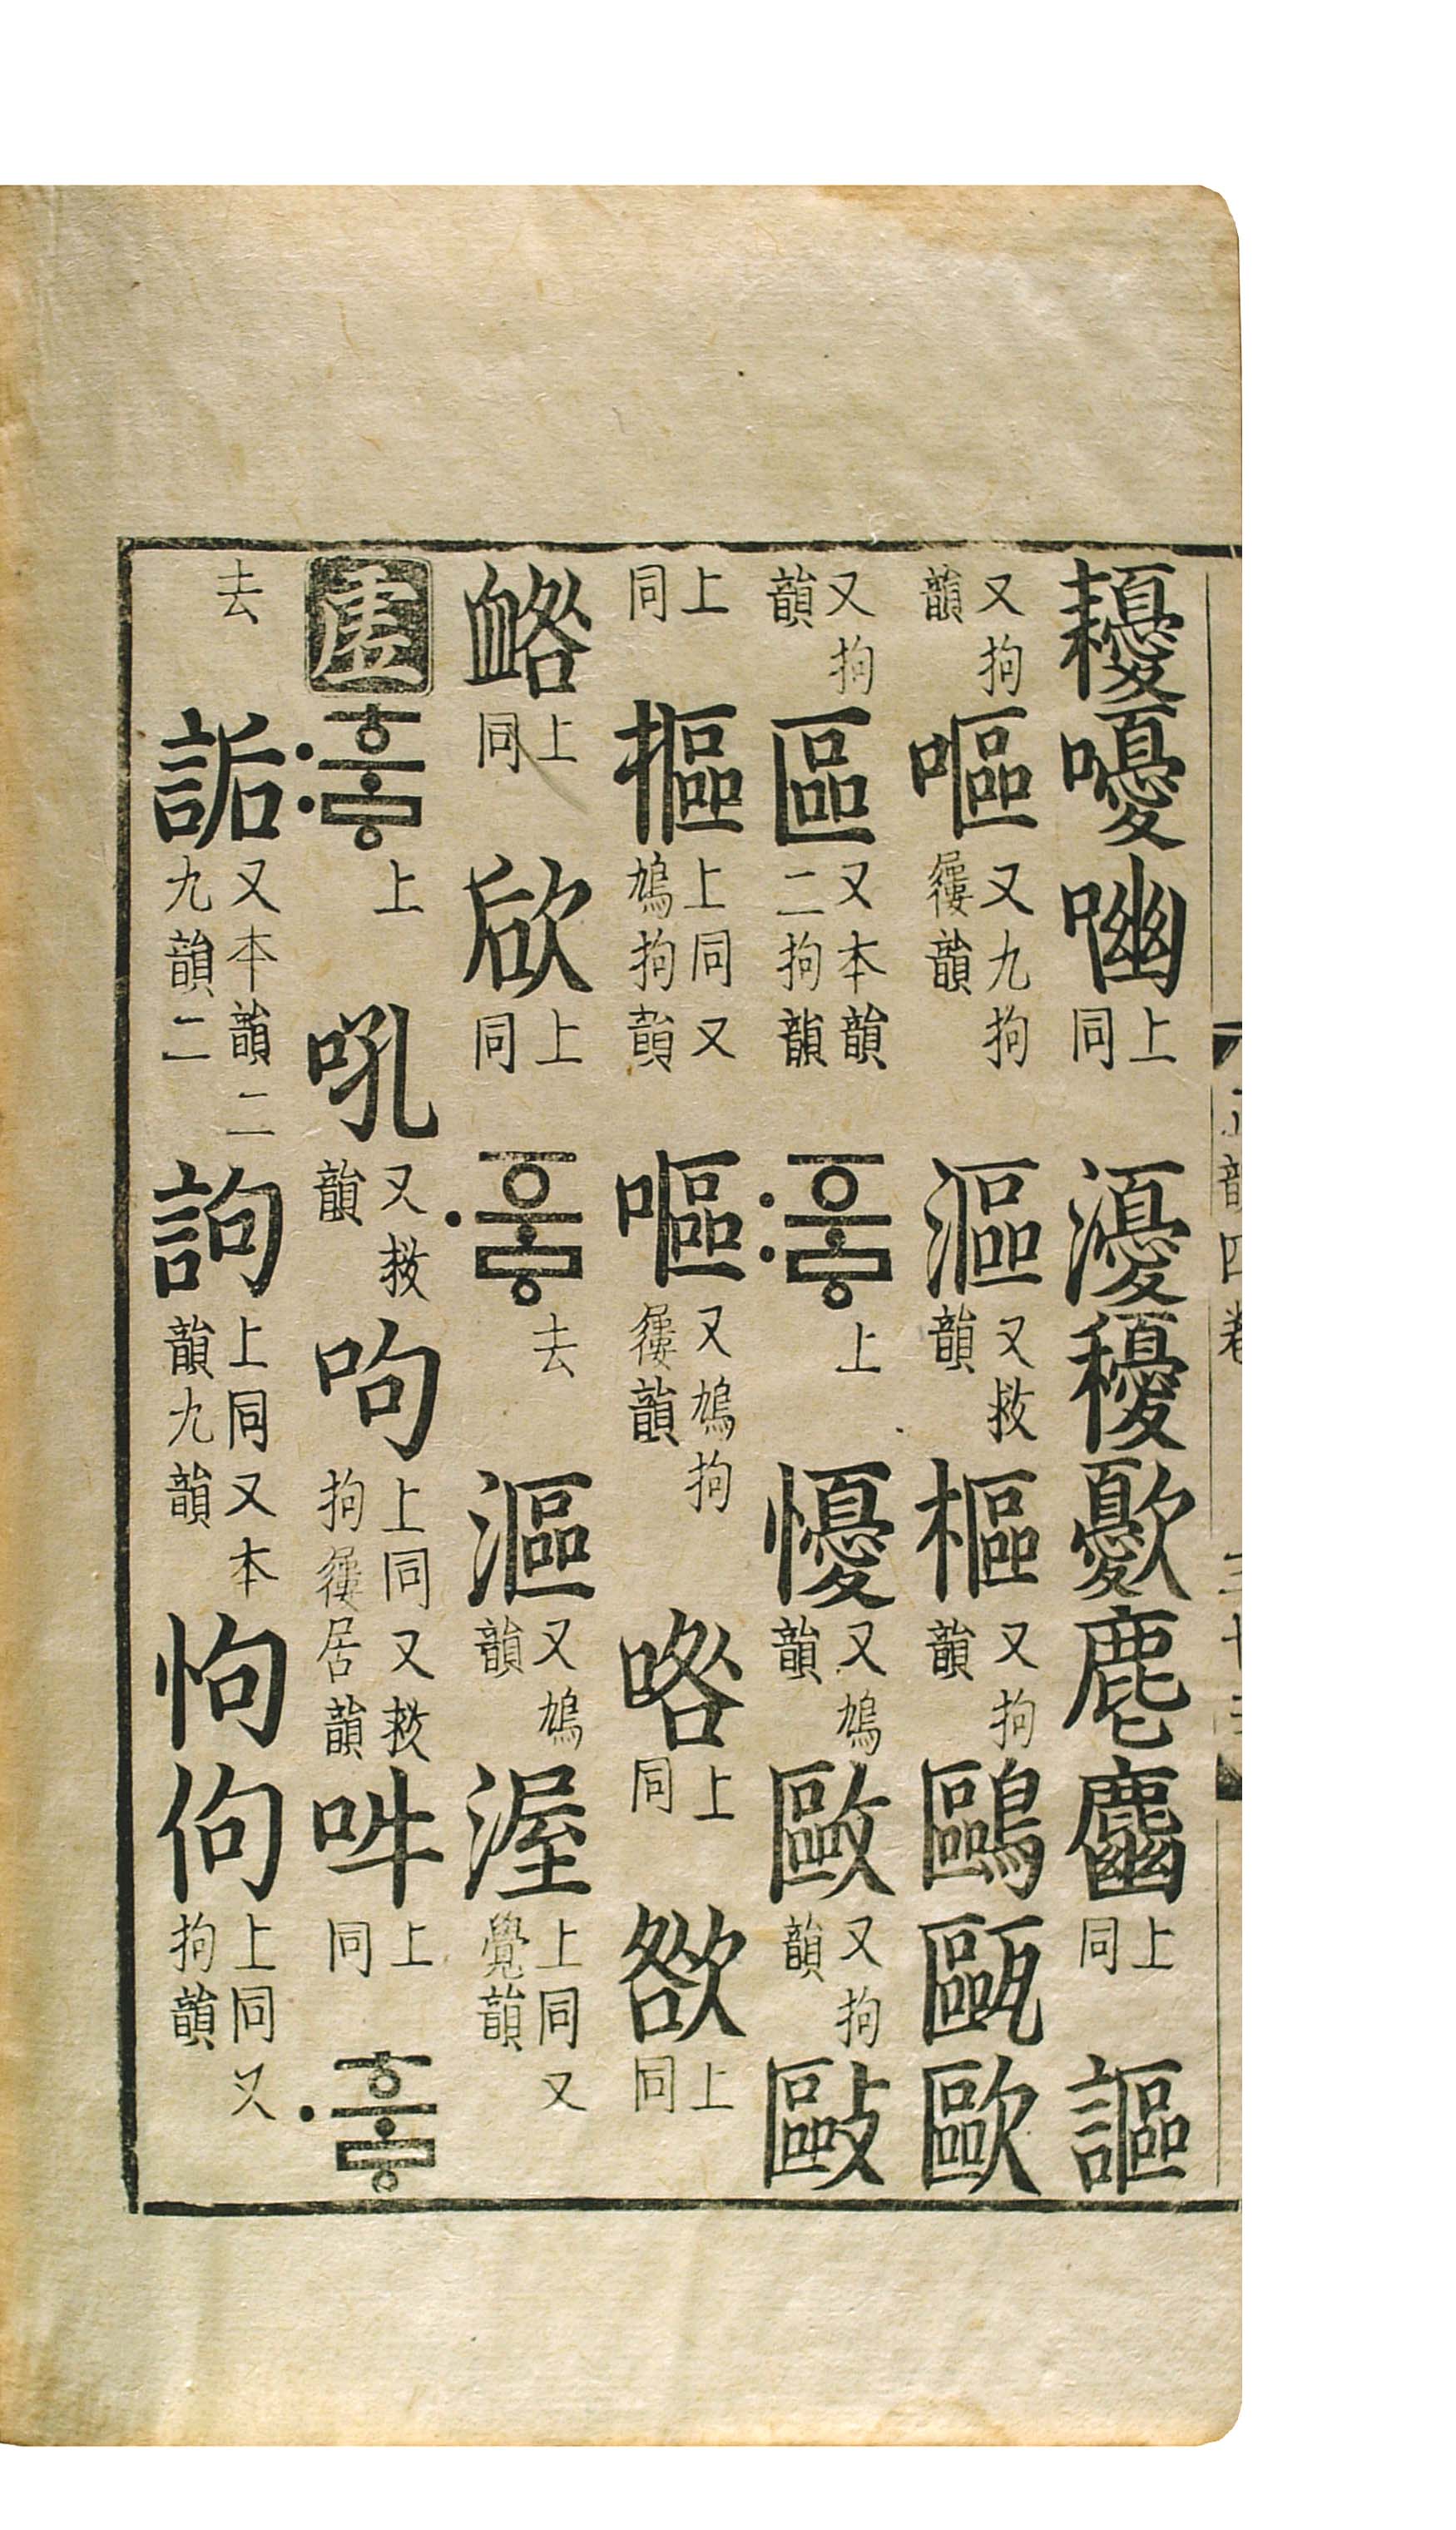 耰嚘上同瀀䅎麀上同謳
又拘韻嘔又九拘屨韻漚又救韻樞又拘韻鷗甌歐
又拘韻區又本韻二拘韻〯ᅙᅮᇢ上懮又鳩韻又拘韻敺
上同摳上同又鳩拘韻嘔又鳩拘屨韻咯上同上同
衉上同上同〮ᅙᅮᇢ去漚又鳩韻渥上同又覺韻
虛〯후ᇢ上吼又救韻呴上同又救拘屨居韻吽上同〮후ᇢ
去詬又本韻二九韻二訽上同又本韻九韻怐佝上同又拘韻
韻四卷